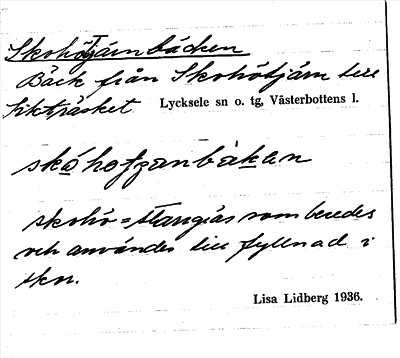 Skohötjärnbäcken
Bäck från Skohötjärn till
Siktträsket Lycksele sn o. tg, Västerbottens l.
skohö = starrgräs som beredes
och användes till fyllnad i
skor.
Lisa Lidberg 1936.